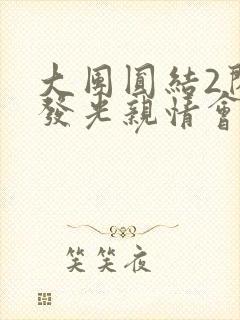 大團圓結2
發光親情會
笑笑夜